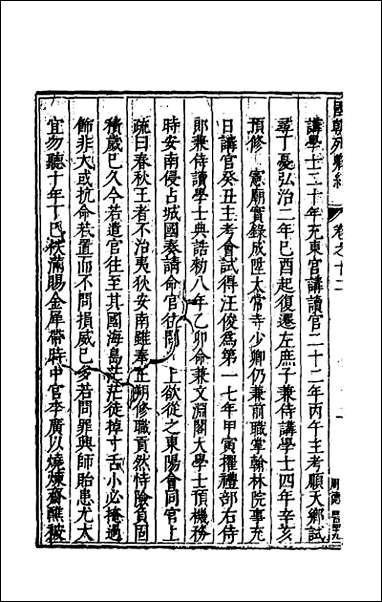 國朝列卿紀
卷之十二
講學士二十年充東宮講讀官二十二年丙午主考順天鄉試
尋丁憂弘治二年己酉起復遷左庶子兼侍講學士四年辛亥
預修　憲廟實錄成陞太常寺少卿仍兼前職掌翰林院事充
日講官癸丑主考會試得汪俊為第一七年甲寅擢禮部右侍
郎兼侍讀學士典誥勑八年乙卯命兼文淵閣大學士預機務
時安南侵占城國奏請命官往問　上欲從之東陽會同官上
疏曰春秋王者不治夷狄安南雖奉正朔修職貢然恃險負固
積歲已久今若遣官往至其國海島茫茫徒掉寸舌小必掩過
飾非大或抗命若置而不問損威已多若問罪興師貽患尤大
宜勿聽十年丁巳秩滿賜金犀帶時中官李廣以燒煉齋醮被